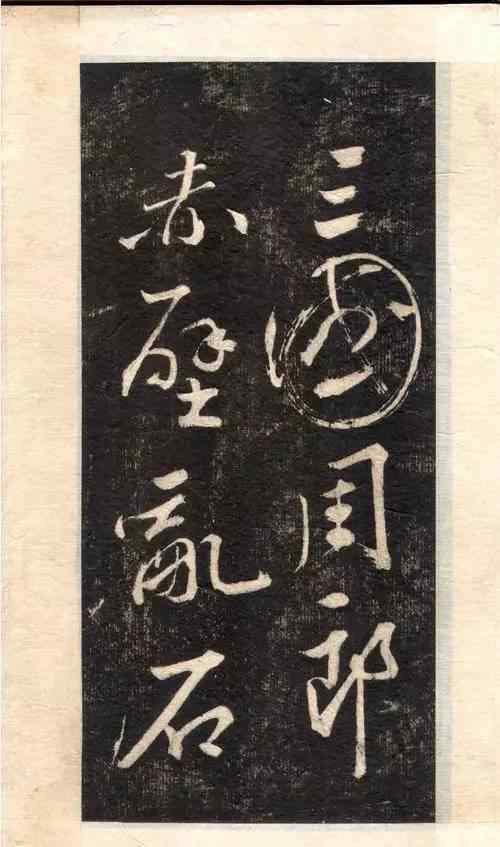 三國周郎
赤壁亂石